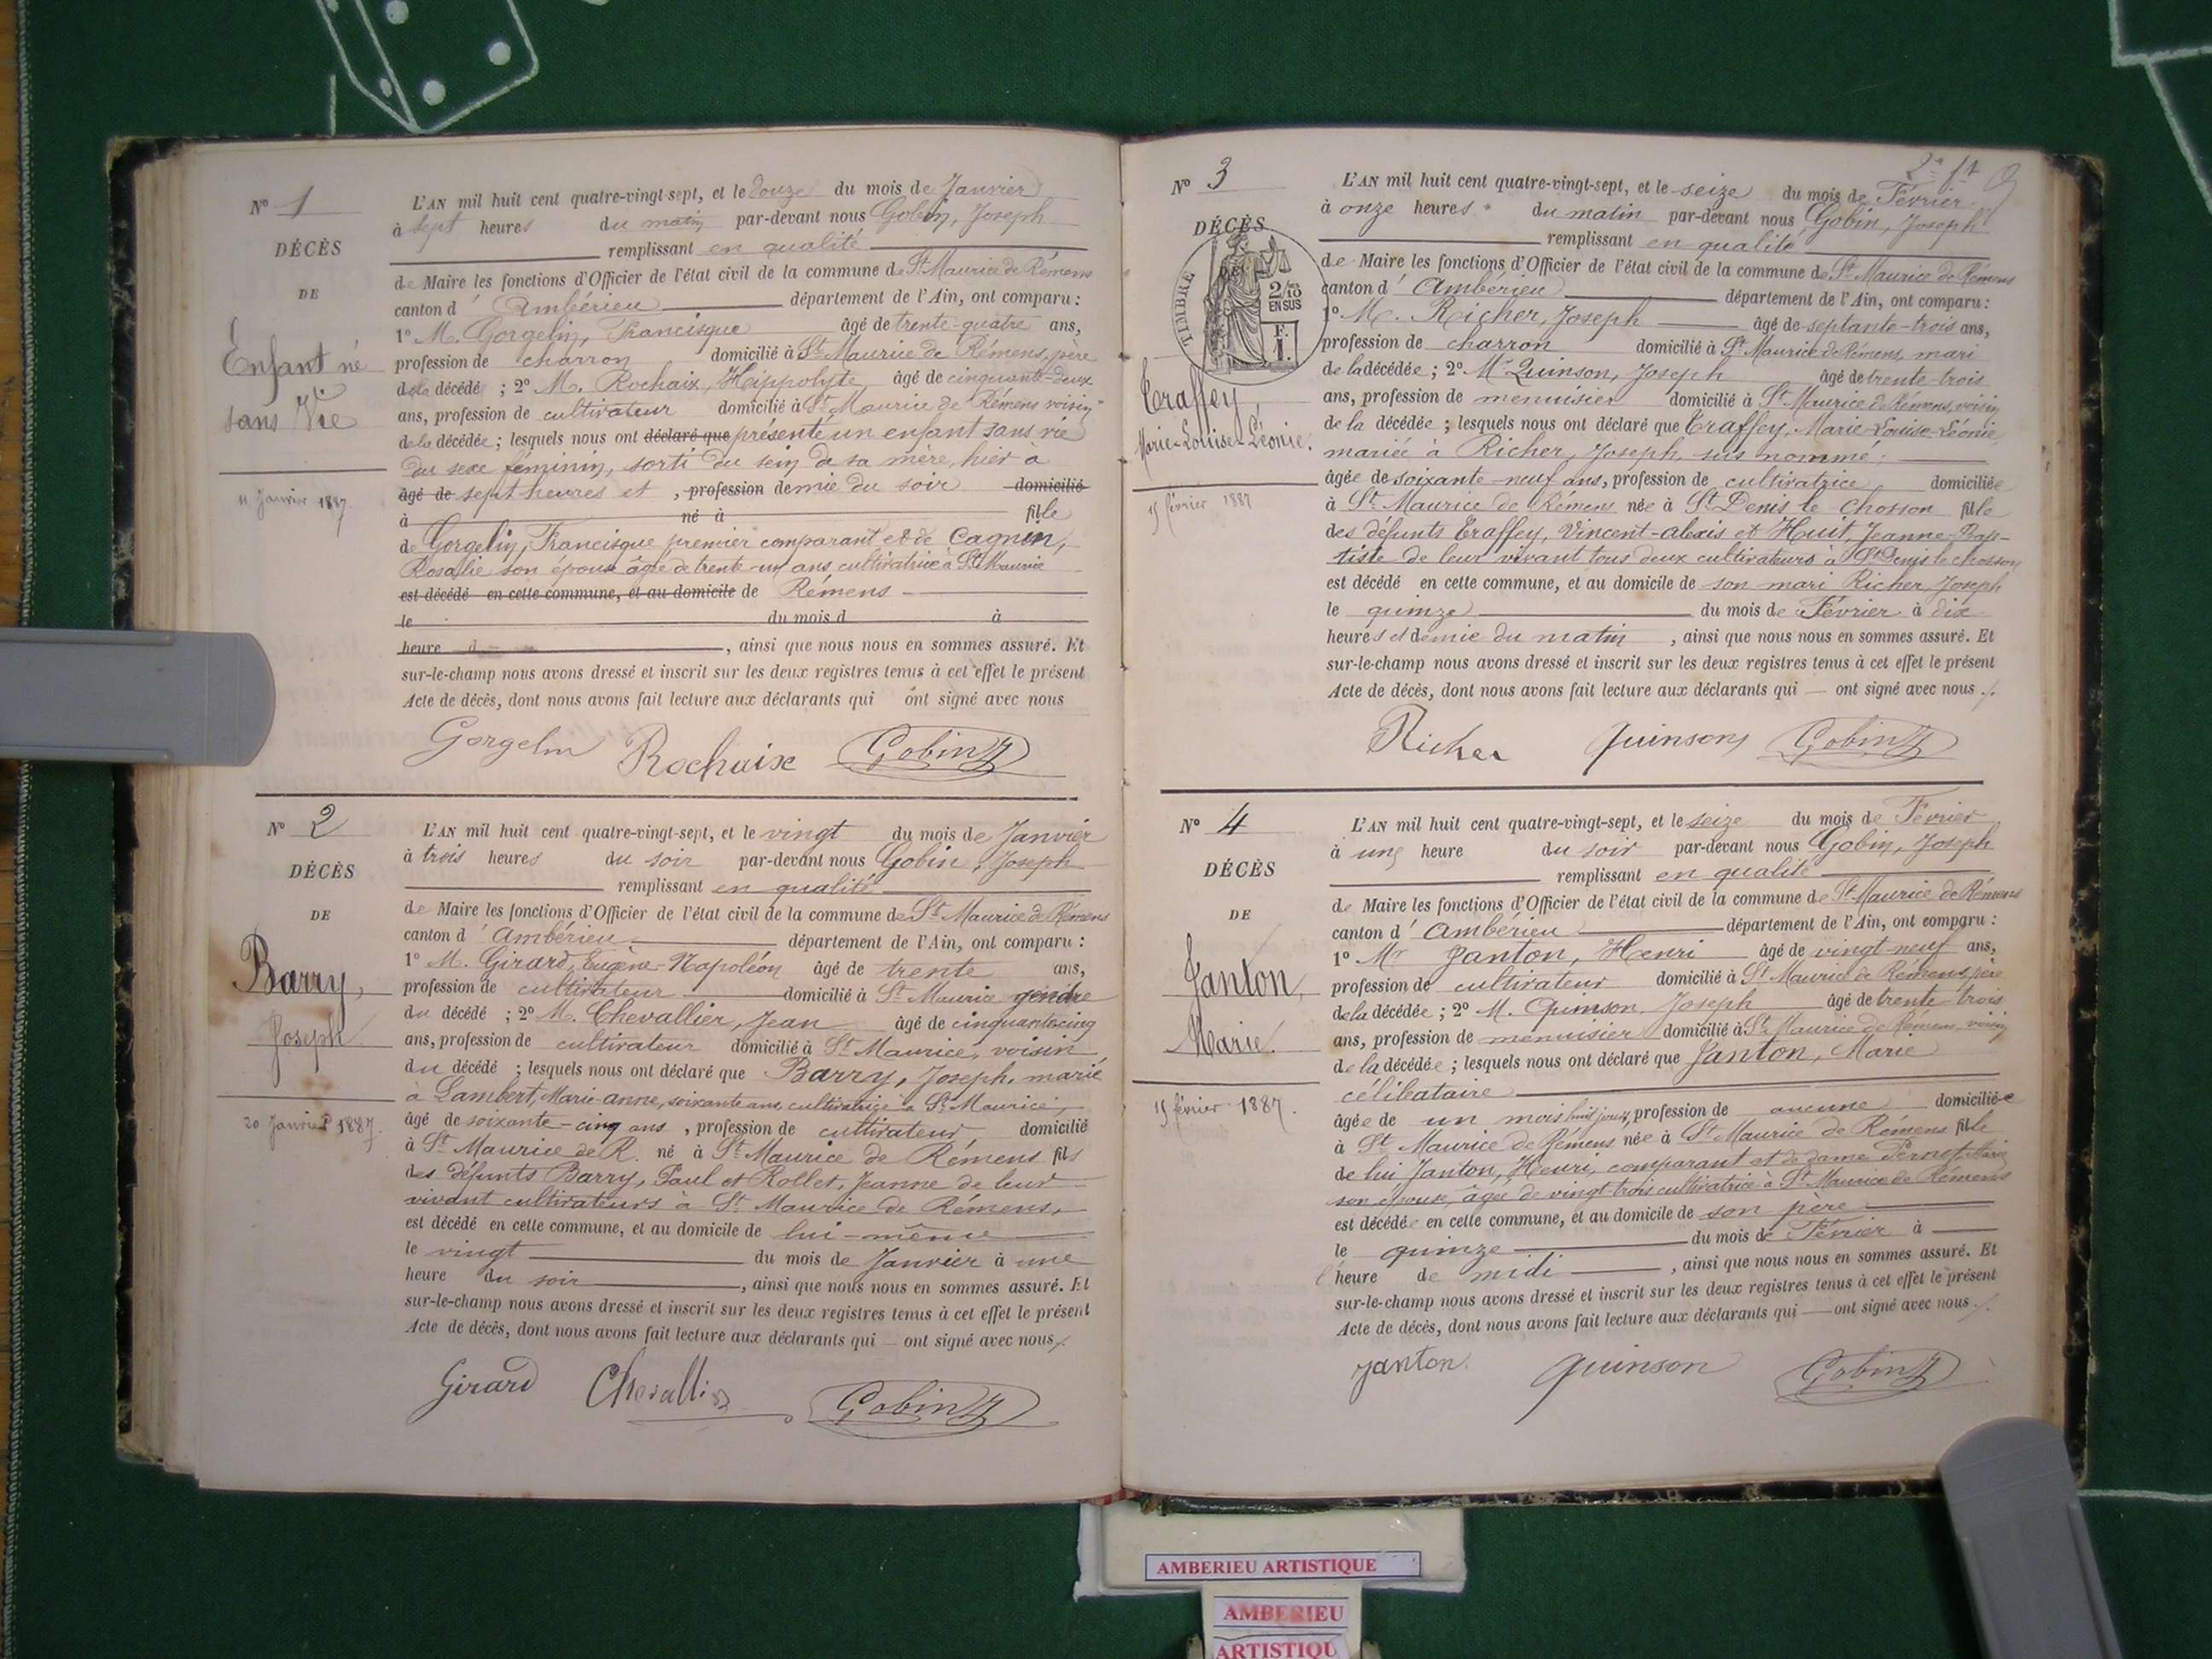 N° 1
DÉCÈS
DE
Enfant né
sans Vie
11 Janvier 1887.
L'AN mil huit cent quatre-vingt-sept, et le douze du mois de Janvier
à sept heures du matin par-devant nous Gobin, Joseph
remplissant en qualité
de Maire les fonctions d'Officier de l'état civil de la commune de St Maurice de Rémens
canton d' Ambérieu département de l'Ain, ont comparu :
1° M. Gorgelin, Francisque âgé de trente-quatre ans,
profession de charron domicilié à St Maurice de Rémens, père
de la décédé ; 2° M. Rochaix, Hippolyte, âgé de cinquante-deux
ans, profession de cultivateur domicilié à St Maurice de Rémens voisin
de la décédée ; lesquels nous ont déclaré que présenté un enfant sans vie
du sexe féminin, sorti du sein de sa mère, hier a
âgé de sept heures et , profession demie du soir domicilié
à né à fille
de Gorgelin, Francisque premier comparant et de Cagnin,
Rosalie son épouse âgée de trente-un ans cultivatrice à St Maurice
est décédé en cette commune, et au domicile de de Rémens
le du mois d à
heure d , ainsi que nous nous en sommes assuré. Et
sur-le-champ nous avons dressé et inscrit sur les deux registres tenus à cet effet le présent
Acte de décès, dont nous avons fait lecture aux déclarants qui ont signé avec nous
Gorgelin Rochaix Gobin J
N° 2
DÉCÈS
DE
Barry,
Joseph
20 Janvier 1887.
L'AN mil huit cent quatre-vingt-sept, et le vingt du mois de Janvier
à trois heures du soir par-devant nous Gobin, Joseph
remplissant en qualité
de Maire les fonctions d'Officier de l'état civil de la commune de St Maurice de Rémens
canton d' Ambérieu département de l'Ain, ont comparu :
1° M. Girard, Eugène-Napoléon âgé de trente ans,
profession de cultivateur domicilié à St Maurice gendre
du décédé ; 2° M. Chevallier, Jean âgé de cinquante cinq
ans, profession de cultivateur domicilié à St Maurice, voisin
du décédé ; lesquels nous ont déclaré que Barry, Joseph, marié
à Lambert, Marie-anne, soixante ans, cultivatrice à St Maurice,
âgé de soixante-cinq ans , profession de cultivateur domicilié
à St Maurice de R. né à St Maurice de Rémens fils
des défunts Barry, Paul et Rollet, Jeanne de leur
vivant cultivateurs à St Maurice de Rémens,
est décédé en cette commune, et au domicile de lui-même
le vingt du mois de Janvier à une
heure du soir , ainsi que nous nous en sommes assuré. Et
sur-le-champ nous avons dressé et inscrit sur les deux registres tenus à cet effet le présent
Acte de décès, dont nous avons fait lecture aux déclarants qui — ont signé avec nous
Girard Chevallier Gobin J
N° 3
DÉCÈS
DE
TIMBRE
2/10
EN SUS
Traffey,
Marie-Louise-Léonie.
15 février 1887
L'AN mil huit cent quatre-vingt-sept, et le seize du mois de Février
à onze heures du matin par-devant nous Gobin, Joseph
remplissant en qualité
de Maire les fonctions d'Officier de l'état civil de la commune de St Maurice de Rémens
canton d' Ambérieu département de l'Ain, ont comparu :
1° M. Richer, Joseph âgé de septante-trois ans,
profession de charron domicilié à St Maurice de Rémens, mari
de la décédée ; 2° Mr Quinson, Joseph âgé de trente-trois
ans, profession de menuisier domicilié à St Maurice de Rémens, voisin
de la décédée ; lesquels nous ont déclaré que Traffey, Marie-Louise-Léonie,
mariée à Richer, Joseph, sus nommé ;
âgée de soixante-neuf ans, profession de cultivatrice domiciliée
à St Maurice de Rémens née à St Denis le Chosson fille
des défunts Traffey, Vincent-alexis et Huit, Jeanne-Bap-
tiste de leur vivant tous deux cultivateurs à St Denis le chosson
est décédé en cette commune, et au domicile de son mari Richer, Joseph
le quinze du mois de Février à dix
heures et demie du matin , ainsi que nous nous en sommes assuré. Et
sur-le-champ nous avons dressé et inscrit sur les deux registres tenus à cet effet le présent
Acte de décès, dont nous avons fait lecture aux déclarants qui — ont signé avec nous
Richer Quinson Gobin J
N° 4
DÉCÈS
DE
Janton,
Marie.
15 février 1887.
L'AN mil huit cent quatre-vingt-sept, et le seize du mois de Février
à une heure du soir par-devant nous Gobin, Joseph
remplissant en qualité
de Maire les fonctions d'Officier de l'état civil de la commune de St Maurice de Rémens
canton d' Ambérieu département de l'Ain, ont comparu :
1° Mr Janton, Henri âgé de vingt-neuf ans,
profession de cultivateur domicilié à St Maurice de Rémens, père
de la décédée ; 2° M. Quinson, Joseph âgé de trente-trois
ans, profession de menuisier domicilié à St Maurice de Rémens, voisin
de la décédée ; lesquels nous ont déclaré que Janton, Marie
célibataire
âgée de un mois huit jours, profession de aucune domiciliée
à St Maurice de Rémens née à St Maurice de Rémens fille
de lui Janton, Henri, comparant et de dame
son épouse, âgée de vingt-trois cultivatrice à St Maurice de Rémens
est décédée en cette commune, et au domicile de son père
le quinze du mois de Février à
l'heure de midi , ainsi que nous nous en sommes assuré. Et
sur-le-champ nous avons dressé et inscrit sur les deux registres tenus à cet effet le présent
Acte de décès, dont nous avons fait lecture aux déclarants qui — ont signé avec nous
Janton Quinson Gobin J
AMBERIEU ARTISTIQUE
AMBERIEU
ARTISTIQU